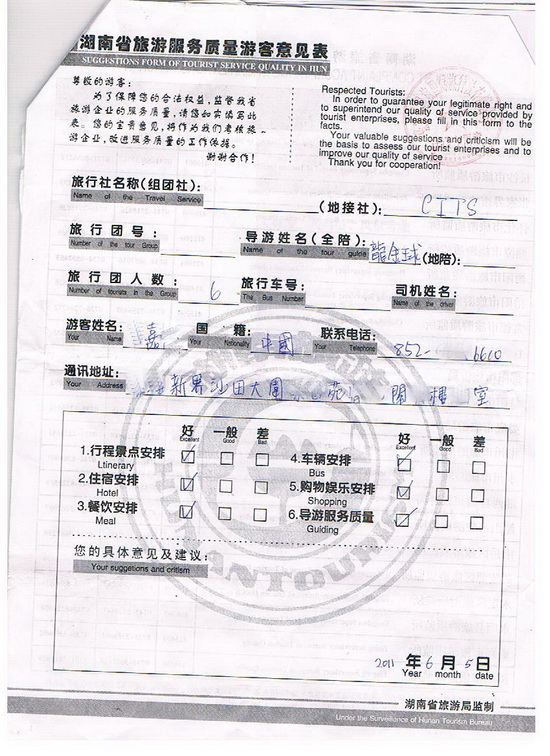 湖南省旅游服务质量游客意见表
SUGGESTIONS FORM OF TOURIST SERVICE QUALITY IN HUN
尊敬的游客:
为了保障您的合法权益,监督我省
旅游企业的服务质量,请您如实填写此
表。您的宝贵意见,将作为我们考核旅
游企业、改进服务质量的工作依据。
谢谢合作!
Respected Tourists:
In order to guarantee your legitimate right and
to superintend our quality of service provided by
tourist enterprises, please fill in this form to the
facts.
Your valuable suggestions and criticism will be
the basis to assess our tourist enterprises and to
improve our quality of service!
Thank you for cooperation!
旅行社名称(组团社): (地接社): CITS
Name of the Travel Service
旅行团号: 导游姓名(全陪): 龍全球 (地陪):
Number of the tour Group Name of the tour guide
旅行团人数: 6 旅行车号: 司机姓名:
Number of tourists in the Group The Bus Number Name of the driver
游客姓名: 嘉 国籍: 中國 联系电话: 852- 6610
Your Name Your Nationality Your Telephone
通讯地址: 新界沙田大圍 苑 閣 樓 室
Your Address
好 一般 差 好 一般 差
Excellent Good Bad Excellent Good Bad
1.行程景点安排 4.车辆安排
Ltinerary Bus
2.住宿安排 5.购物娱乐安排
Hotel Shopping
3.餐饮安排 6.导游服务质量
Meal Guiding
HUNAN TOURISM
您的具体意见及建议:
Your suggetions and critism
2011 年 6 月 5 日
Year month date
湖南省旅游局监制
Under the Surveillance of Hunan Tourism Bureau